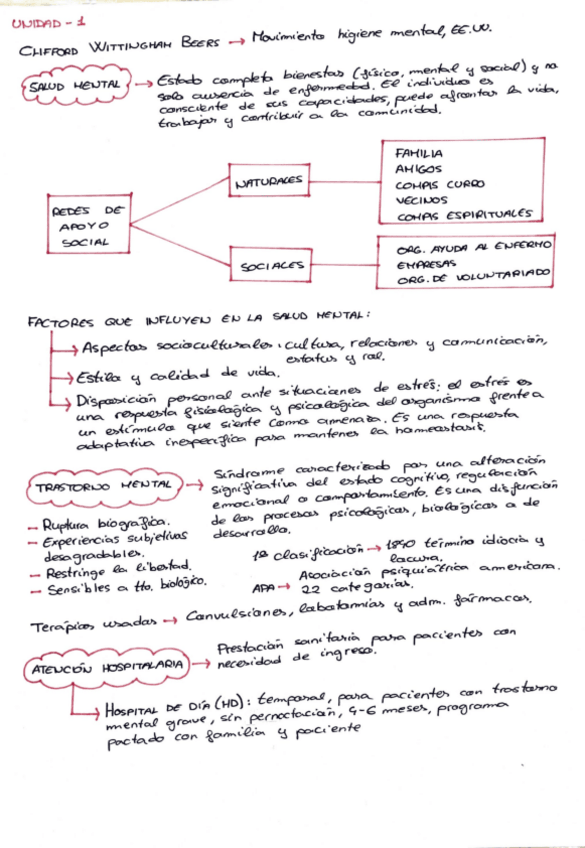 UNIDAD - 1
CLIFFORD WITTINGHAM BEERS → Movimiento higiene mental, EE.UU.
SALUD MENTAL → Estado completo bienestar (físico, mental y social) y no
solo ausencia de enfermedad. El individuo es
consciente de sus capacidades, puede afrontar la vida,
trabajar y contribuir a la comunidad.
REDES DE
APOYO
SOCIAL
NATURALES
FAMILIA
AMIGOS
COMPIS CURRO
VECINOS
COMPIS ESPIRITUALES
SOCIALES
ORG. AYUDA AL ENFERMO
EMPRESAS
ORG. DE VOLUNTARIADO
FACTORES QUE INFLUYEN EN LA SALUD MENTAL:
→ Aspectos socioculturales: cultura, relaciones y comunicación,
estatus y rol.
→ Estilo y calidad de vida.
→ Disposición personal ante situaciones de estrés: el estrés es
una respuesta fisiológica y psicológica del organismo frente a
un estímulo que siente como amenaza. Es una respuesta
adaptativa inespecífica para mantener la homeostasis.
TRASTORNO MENTAL → Síndrome caracterizado por una alteración
significativa del estado cognitivo, regulación
emocional o comportamiento. Es una disfunción
de los procesos psicológicos, biológicos o de
desarrollo.
- Ruptura biográfica.
- Experiencias subjetivas
desagradables.
- Restringe la libertad.
- Sensibles a tto. biológico.
1ª clasificación → 1840 término idiocia y
locura.
Asociación psiquiátrica americana.
APA → 22 categorías.
Terapias usadas → Convulsiones, lobotomías y adm. fármacos.
ATENCIÓN HOSPITALARIA → Prestación sanitaria para pacientes con
necesidad de ingreso.
→ HOSPITAL DE DÍA (HD): temporal, para pacientes con trastorno
mental grave, sin pernoctación, 4-6 meses, programa
pactado con familia y paciente